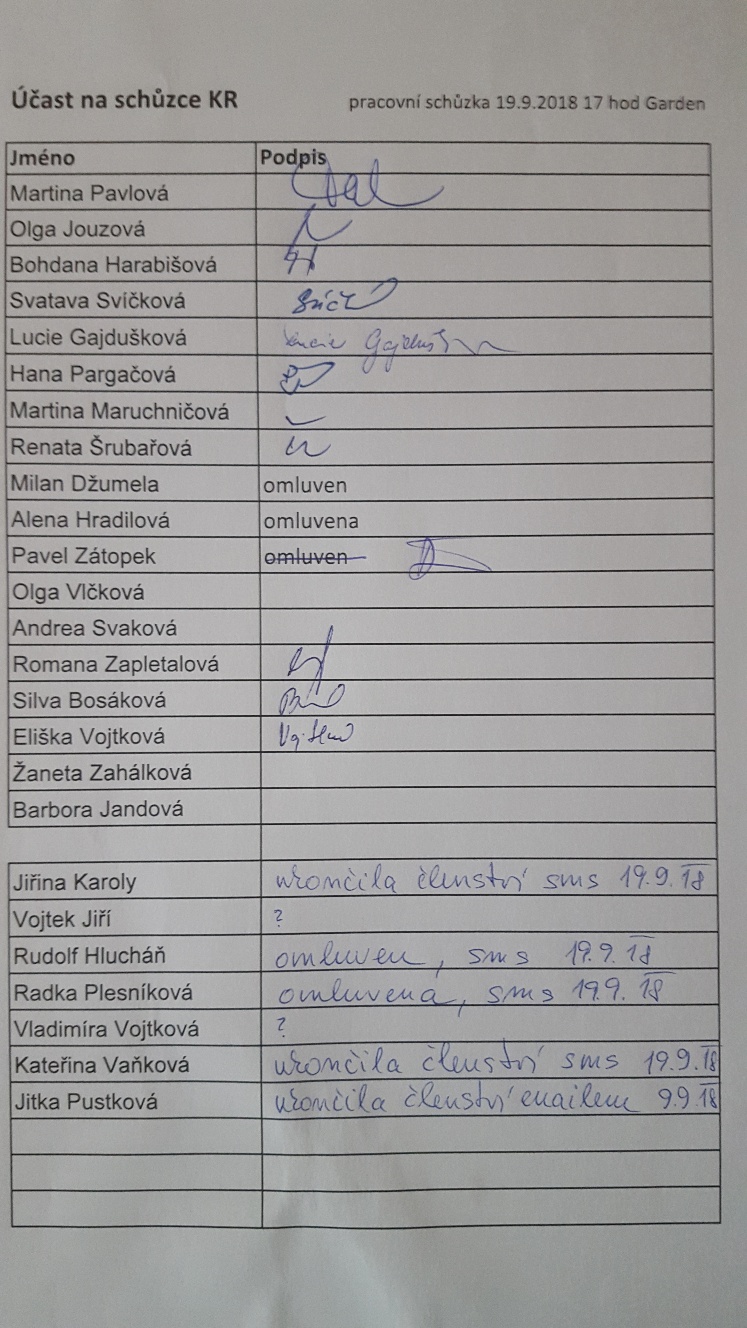 Účast na schůzce KR pracovní schůzka 19.9.2018 17 hod Garden
Jméno Podpis
Martina Pavlová
Olga Jouzová
Bohdana Harabišová
Svatava Svíčková
Lucie Gajdušková Lucie Gajdušk
Hana Pargačová
Martina Maruchničová
Renata Šrubařová
Milan Džumela omluven
Alena Hradilová omluvena
Pavel Zátopek omluven
Olga Vlčková
Andrea Svaková
Romana Zapletalová
Silva Bosáková
Eliška Vojtková
Žaneta Zahálková
Barbora Jandová
Jiřina Karoly ukončila členství sms 19.9.18
Vojtek Jiří ?
Rudolf Hlucháň omluven, sms 19.9.18
Radka Plesníková omluvena, sms 19.9.18
Vladimíra Vojtková ?
Kateřina Vaňková ukončila členství sms 19.9.18
Jitka Pustková ukončila členství emailem 9.9.18